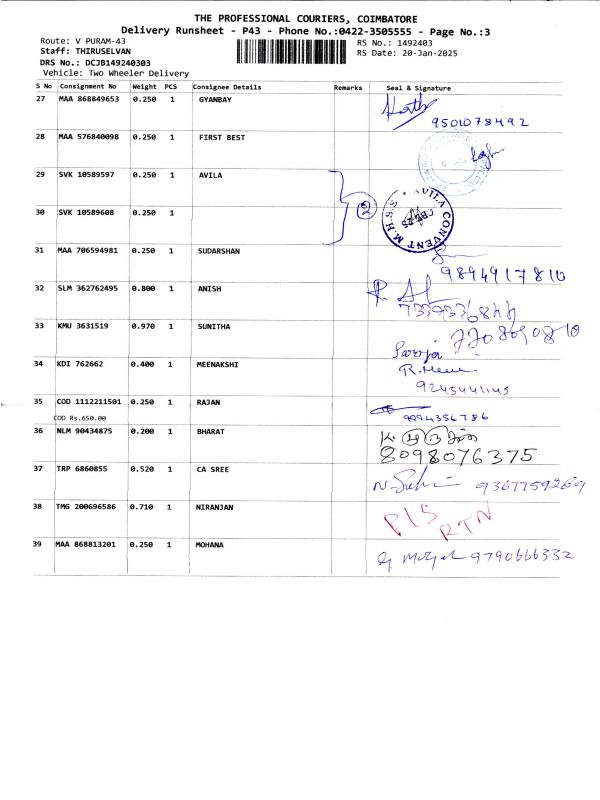 THE PROFESSIONAL COURIERS, COIMBATORE
Delivery Runsheet - P43 - Phone No.:0422-3505555 - Page No.:3
Route: V PURAM-43
RS No.: 1492403
Staff: THIRUSELVAN
RS Date: 20-Jan-2025
DRS No.: DCJB149240303
Vehicle: Two Wheeler Delivery
S No Consignment No Weight PCS Consignee Details Remarks Seal & Signature
27 MAA 868849653 0.250 1 GYANBAY
9501078492
28 MAA 576840098 0.250 1 FIRST BEST
29 SVK 10589597 0.250 1 AVILA
30 SVK 10589608 0.250 1
AVILA CONVENT M.H.S.S.
31 MAA 706594981 0.250 1 SUDARSHAN
9894917810
32 SLM 362762495 0.800 1 ANISH
33 KMU 3631519 0.970 1 SUNITHA
Saroja
34 KDI 762662 0.400 1 MEENAKSHI R.Meen
9245441145
35 COD 1112211501 0.250 1 RAJAN
COD Rs.650.00 9994356786
36 NLM 90434875 0.200 1 BHARAT
8098076375
37 TRP 6860855 0.520 1 CA SREE
9367759269
38 TMG 200696586 0.710 1 NIRANJAN P/S
RTN
39 MAA 868813201 0.250 1 MOHANA
9790666332